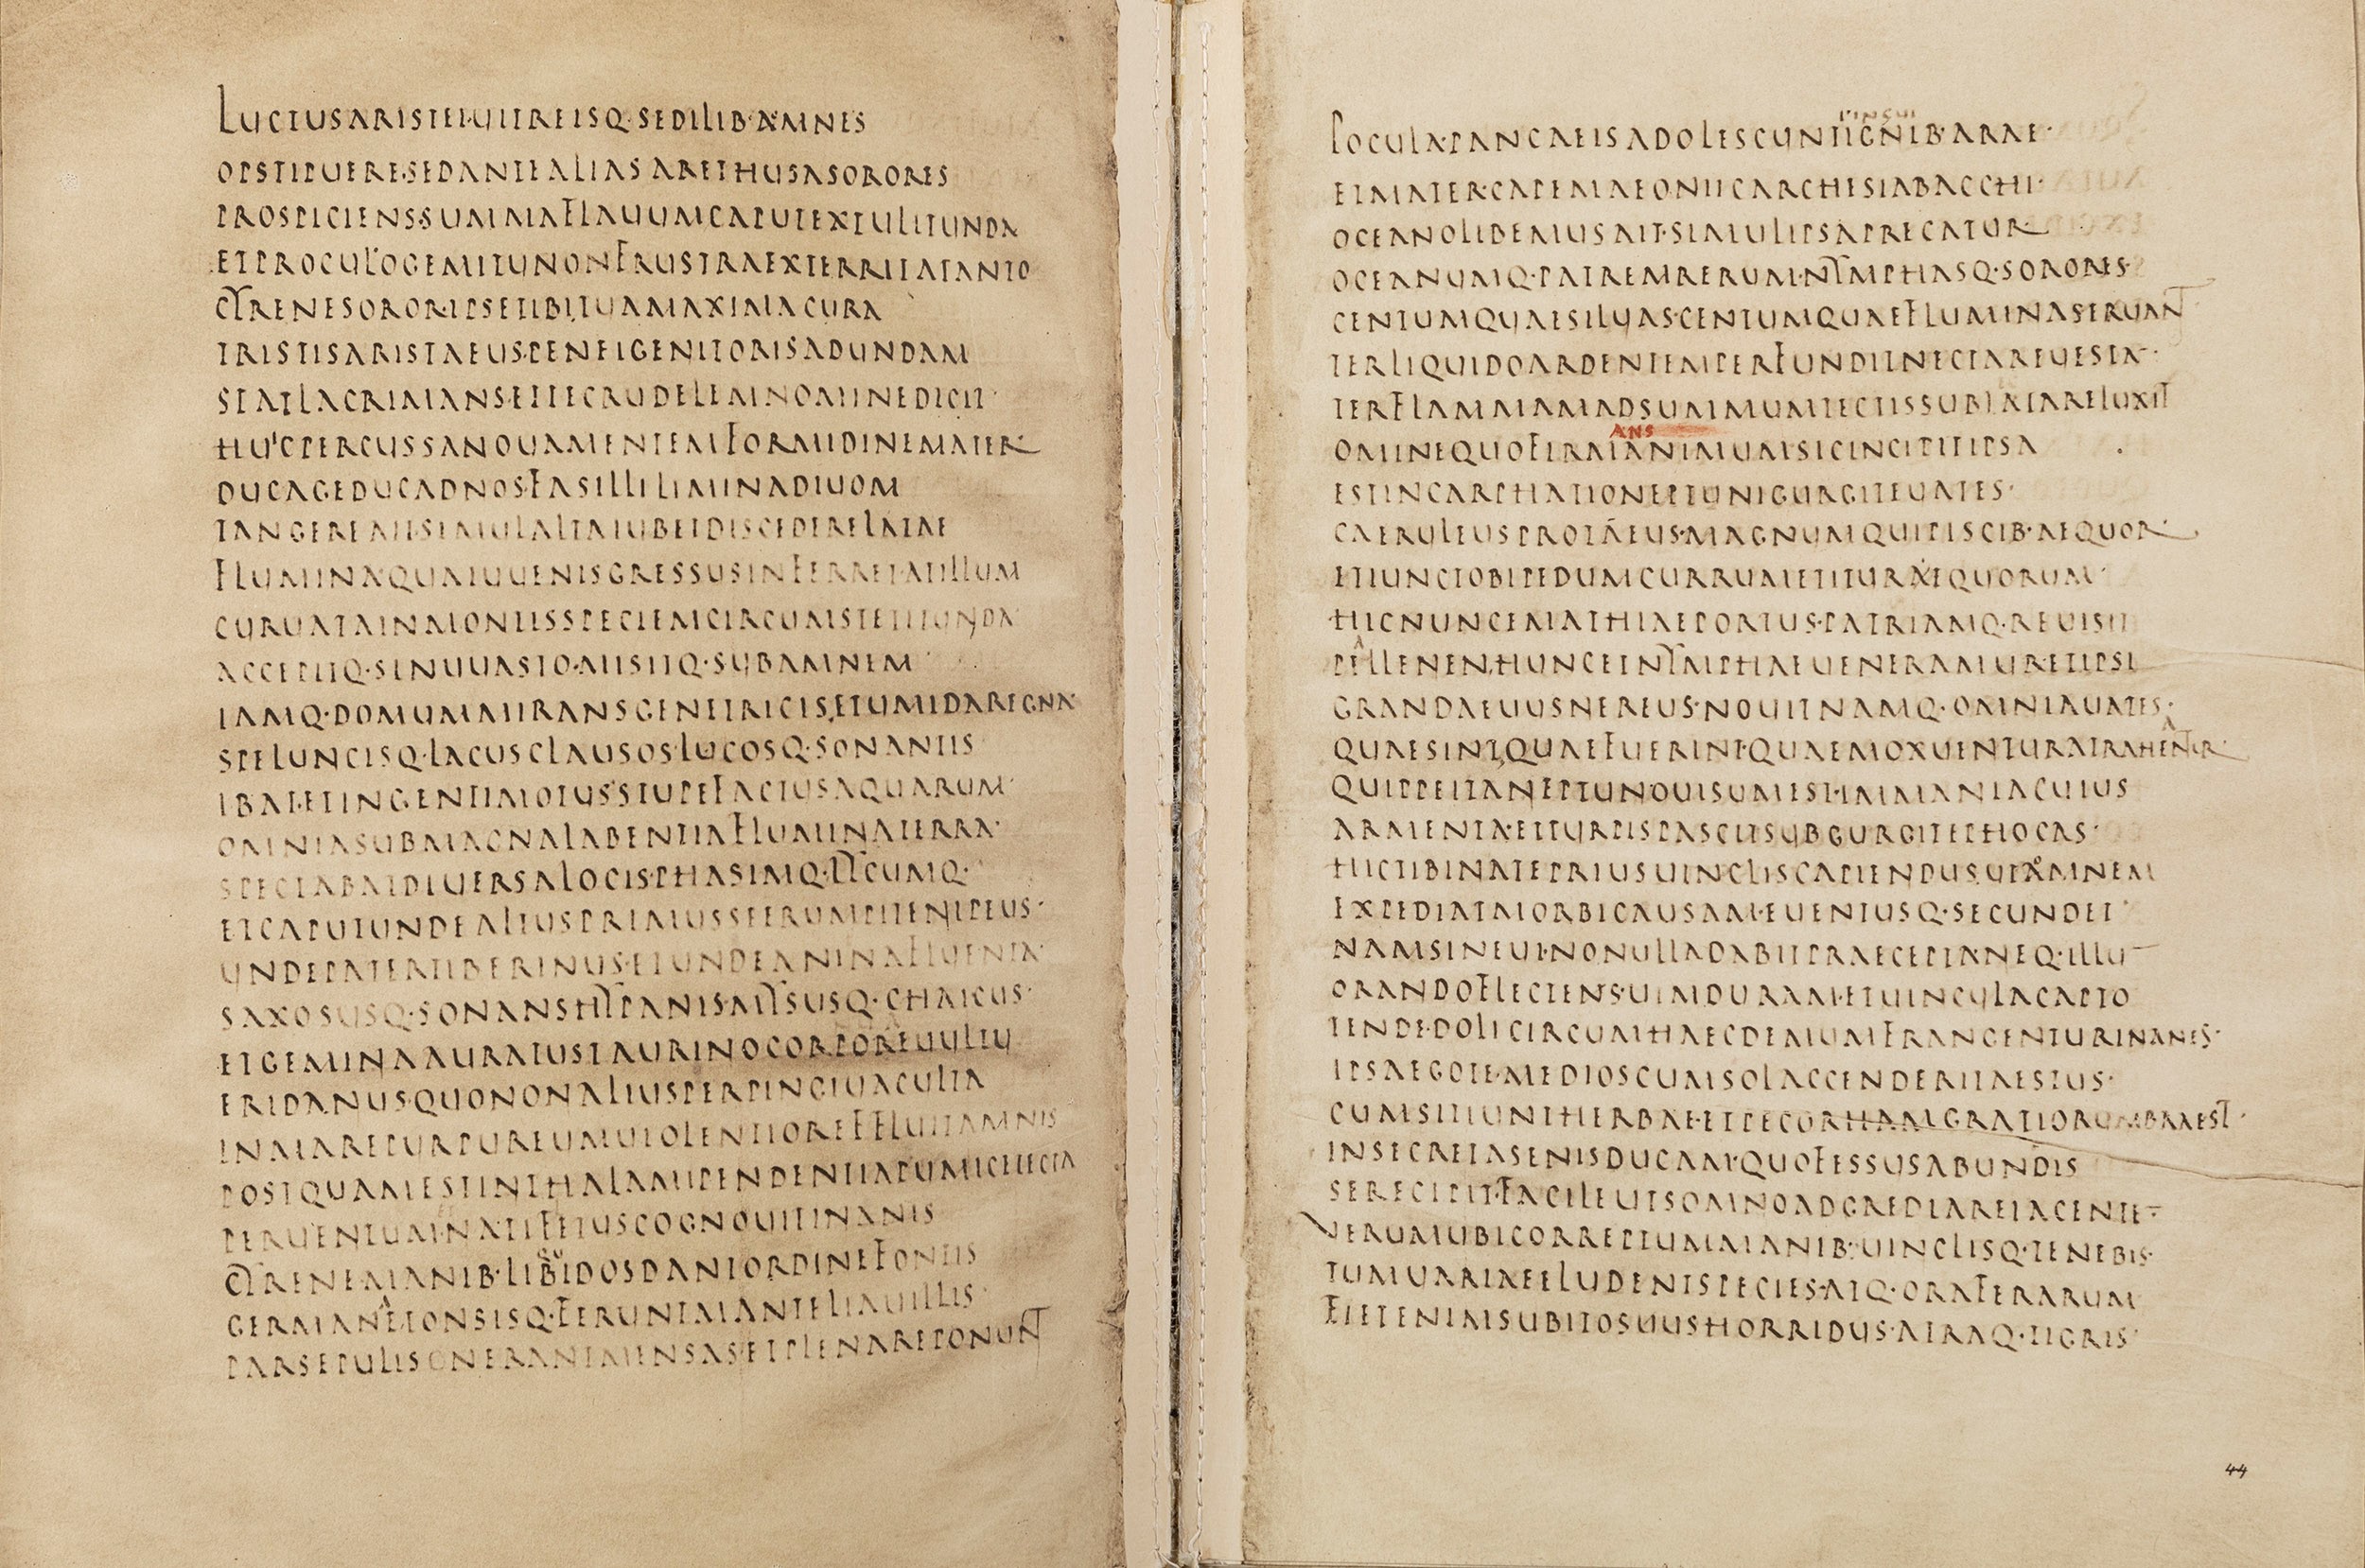 LUCTUSARISTEI·UITREISQ·SEDILIB·AMNES
OPSTIPUERE·SEDANTEALIASARETHUSASORORES
PROSPICIENS·SUMMAFLAUUMCAPUTEXTULITUNDA
ETPROCUL·OGEMITUNONFRUSTRAEXTERRITATANTO
CYRENESOROR·IPSETIBITUAMAXIMACURA
TRISTISARISTAEUS·PENEIGENITORISADUNDAM
STATLACRIMANS·ETTECRUDELEMNOMINEDICIT·
HUICPERCUSSANOUAMENTEMFORMIDINEMATER
DUCAGEDUCADNOS·FASILLILIMINADIUOM
TANGEREAIT·SIMULALTAIUBETDISCEDERELATAE
FLUMINA·QUAIUUENISGRESSUSINFERRET·ATILLUM
CURUATAINMONTISSPECIEMCIRCUMSTETITUNDA
ACCEPITQ·SINUUASTO·MISITQ·SUBAMNEM
IAMQ·DOMUMMIRANSGENETRICIS·ETUMIDAREGNA·
SPELUNCISQ·LACUSCLAUSOS·LUCOSQ·SONANTIS
IBAT·ETINGENTIMOTUSSTUPEFACTUSAQUARUM·
OMNIASUBMAGNALABENTIAFLUMINATERRA·
SPECTABATDIUERSALOCIS·PHASIMQ·LYCUMQ·
ETCAPUTUNDEALTUSPRIMUSSEERUMPITENIPEUS·
UNDEPATERTIBERINUS·ETUNDEANINAFLUENTA·
SAXOSUSQ·SONANSHYPANIS·MYSUSQ·CHAICUS·
ETGEMINAAURATUSTAURINOCORPOREUULTU
ERIDANUS·QUONONALIUSPERPINGUIACULTA
INMAREPURPUREUMUIOLENTIOREFFLUITAMNIS
POSTQUAMESTINTHALAMIPENDENTIAPUMICETECTA
PERUENTUM·NATIFETUSCOGNOUITINANIS
CYRENE·MANIB·LIBIDOSDANTORDINEFONTIS
GERMANETONSISQ·FERUNTMANTELIAUILLIS·
PARSEPULISONERANTMENSAS·ETPLENAREPONUNT
PINGUI
POCULA·PANCAEISADOLESCUNTIGNIB·ARAE·
ETMATER·CAPEMAEONIICARCHESIABACCHI·
OCEANOLIBEMUSAIT·SIMULIPSAPRECATUR
OCEANUMQ·PATREMRERUM·NYMPHASQ·SORORES·
CENTUMQUAESILUAS·CENTUMQUAEFLUMINASERUANT
TERLIQUIDOARDENTEMPERFUNDITNECTAREUESTA·
TERFLAMMAMADSUMMUMTECTISSUBIATARELUXIT
ANS
OMINEQUOFIRMATANIMUMSICINCIPITIPSA
ESTINCARPHATIONEPTUNIGURGITEUATES·
CAERULEUSPROTAEUS·MAGNUMQUIPISCIB·AEQUOR·
ETIUNCTOBIPEDUMCURRUMETITURAEQUORUM·
HICNUNCEMATHIAEPORTUS·PATRIAMQ·REUISIT
PELLENEN·HUNCETNYMPHAEUENERAMURETIPSI
GRANDAEUUSNEREUS·NOUITNAMQ·OMNIAUATES·
QUAESINT·QUAEFUERINT·QUAEMOXUENTURATRAHENTUR·
QUIPPEITANEPTUNOUISUMEST·IMMANIACUIUS
ARMENTA·ETTURPISPASCITSUBGURGITEPHOCAS·
HICTIBINATEPRIUSUINCLISCAPIENDUSUTAMNEM
EXPEDIATMORBICAUSAM·EUENTUSQ·SECUNDET·
NAMSINEUI·NONULLADABITPRAECEPTA·NEQ·ILLU
ORANDOFLECTENS·UIMDURAM·ETUINCULACAPTO
TENDE·DOLICIRCUMHAECDEMUMFRANGENTURINANES·
IPSAEGOTE·MEDIOSCUMSOLACCENDERITAESTUS·
CUMSITIUNTHERBAE·ETPECORIIAMGRATIORUMBRAEST·
INSECRETASENISDUCAM·QUOFESSUSABUNDIS
SERECIPIT·FACILEUTSOMNOADGREDIAREIACENTE
UERUMUBICORREPTUMMANIB·UINCLISQ·TENEBIS·
TUMUARIAEELUDENTSPECIES·ATQ·ORAFERARUM
FIETENIMSUBITOSUUSHORRIDUS·ATRAQ·TIGRIS·
44